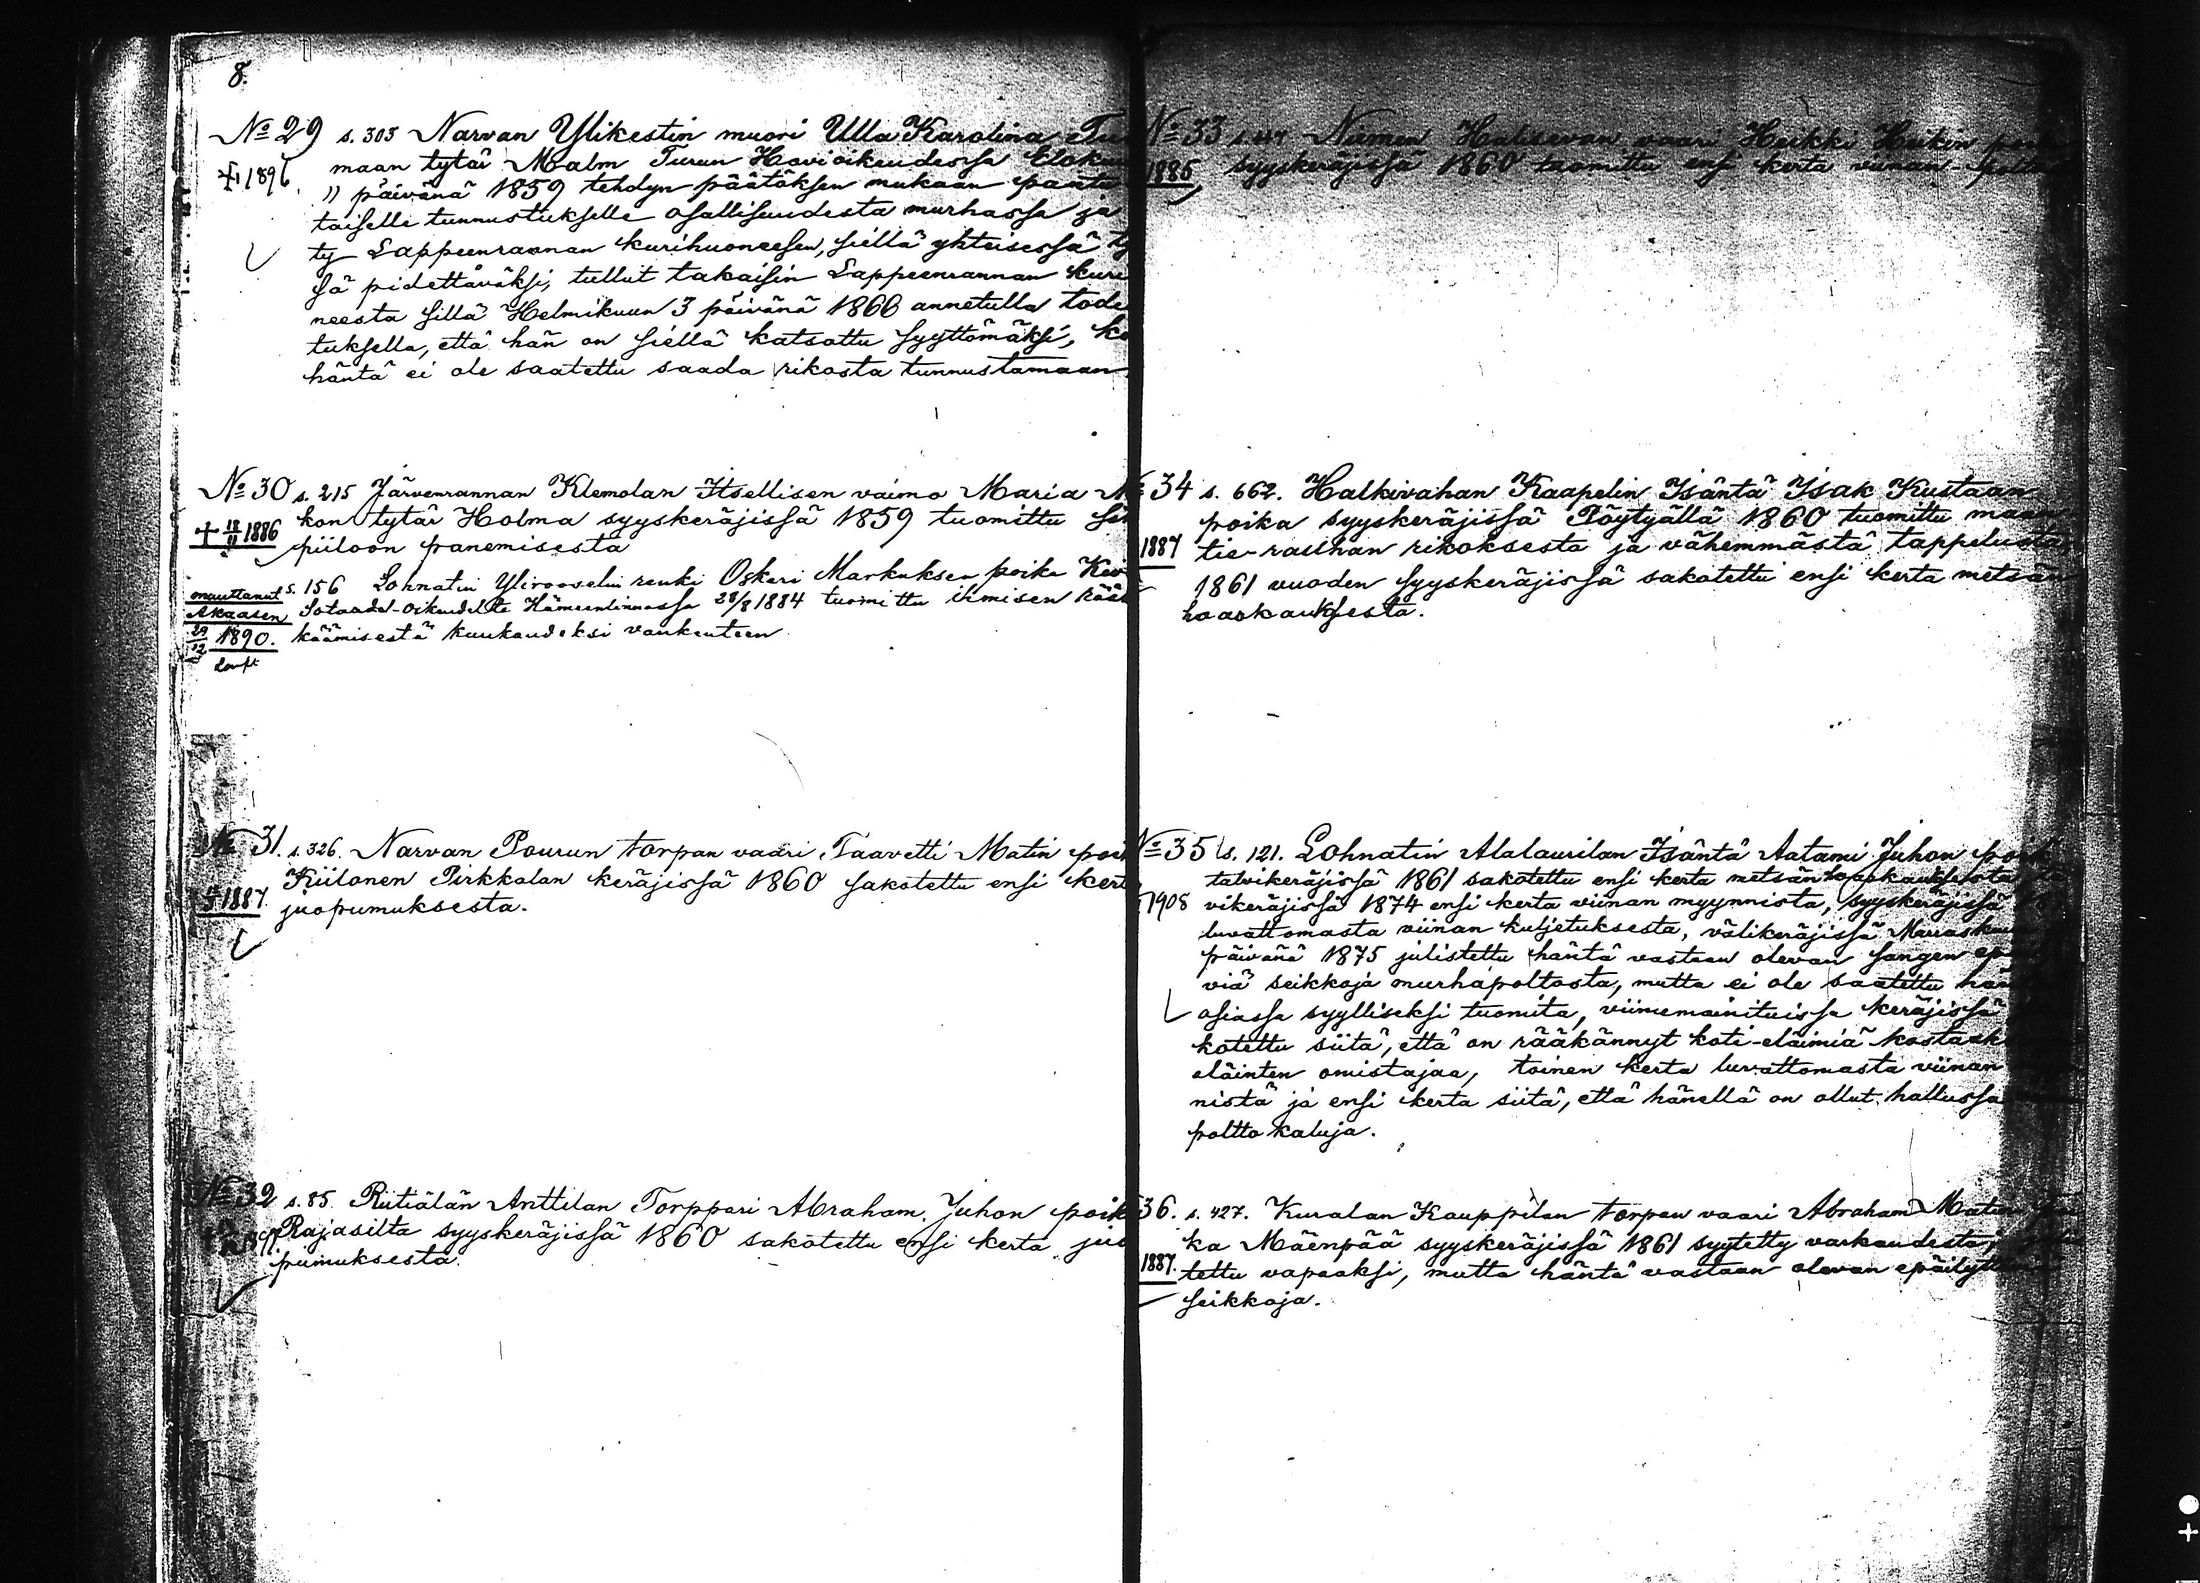 8.
№ 29 s. 303 Narvan Ylikestin muori Ulla Karolina
+ 1896. maan tytär Malm Turun Hovioikeudessa Eloku
11 päivänä 1859 tehdyn päätöksen mukaan pantu
taiselle tunnustukselle osallisuudesta murhassa ja
ty Lappeenrannan kurihuoneesen, siellä yhteisessä ty
sä pidettäväksi; tullut takaisin Lappeenrannan kuri
neesta sillä Helmikuun 3 päivänä 1866 annetulla tode
tuksella, että hän on siellä katsottu syyttömäksi, ko
häntä ei ole saatettu saada rikosta tunnustamaan
№ 30 s. 215 Järvenrannan Klemolan Itsellisen vaimo Maria
+ 18/11 1886 kon tytär Holma syyskeräjissä 1859 tuomittu
piiloon panemisesta
muuttanut s. 156 Lohnatin Ylirooselin renki Oskari Markuksen poika
Akaasen Sotaode-oikeudelta Hämeenlinnassa 28/8 1884 tuomittu ihmisen rää
29/12 1890. käämisestä kuukaudeksi vankeuteen
№ 31. s. 326. Narvan Pourun torpan vaari Taavetti Matin poik
1887. Kiilonen Pirkkalan keräjissä 1860 sakotettu ensi kert
juopumuksesta.
№ 32 s. 85. Ritiälän Anttilan Torppari Abraham Juhon poik
Rajasilta syyskeräjissä 1860 sakotettu ensi kerta juo
pumuksesta.
№ 33 vaari Heikki Heikin
1885 syyskeräjissä 1860 tuomittu ensi kerta viinan-poltto
34 s. 662. Halkivahan Kaapelin Isäntä Isak Kustaan
poika syyskeräjissä Pöytyällä 1860 tuomittu maan
1887 tie-rauhan rikoksesta ja vähemmästä tappelusta,
1861 vuoden syyskeräjissä sakotettu ensi kerta metsän
haaskauksesta.
№ 35 s. 121. Lohnatin Alalaurilan Isäntä Aatami Juhon poik
talvikeräjissä 1861 sakotettu ensi kerta metsän haaskauksesta
1908 vikeräjissä 1874 ensi kerta viinan myynnistä, syyskeräjissä
luvattomasta viinan kuljetuksesta, välikeräjissä Marrasku
päivänä 1875 julistettu häntä vastaan olevan sangen epä
viä seikkoja murhapoltosta, mutta ei ole saatettu hän
asiassa syylliseksi tuomita, viimemainituissa keräjissä
kotettu siitä, että on rääkännyt koti-eläimiä kostaak
eläinten omistajaa, toinen kerta luvattomasta viinan
nistä ja ensi kerta siitä, että hänellä on ollut hallussa
poltto kaluja.
36. s. 427. Kuralan Kauppilan torpan vaari Abraham Matin
ka Mäenpää syyskeräjissä 1861 syytetty varkaudesta,
1887. tettu vapaaksi, mutta häntä vastaan olevan epäilyttä
seikkoja.